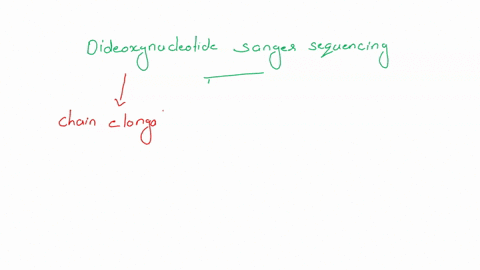 Dideoxynucleotide sanger sequencing
chain elonga